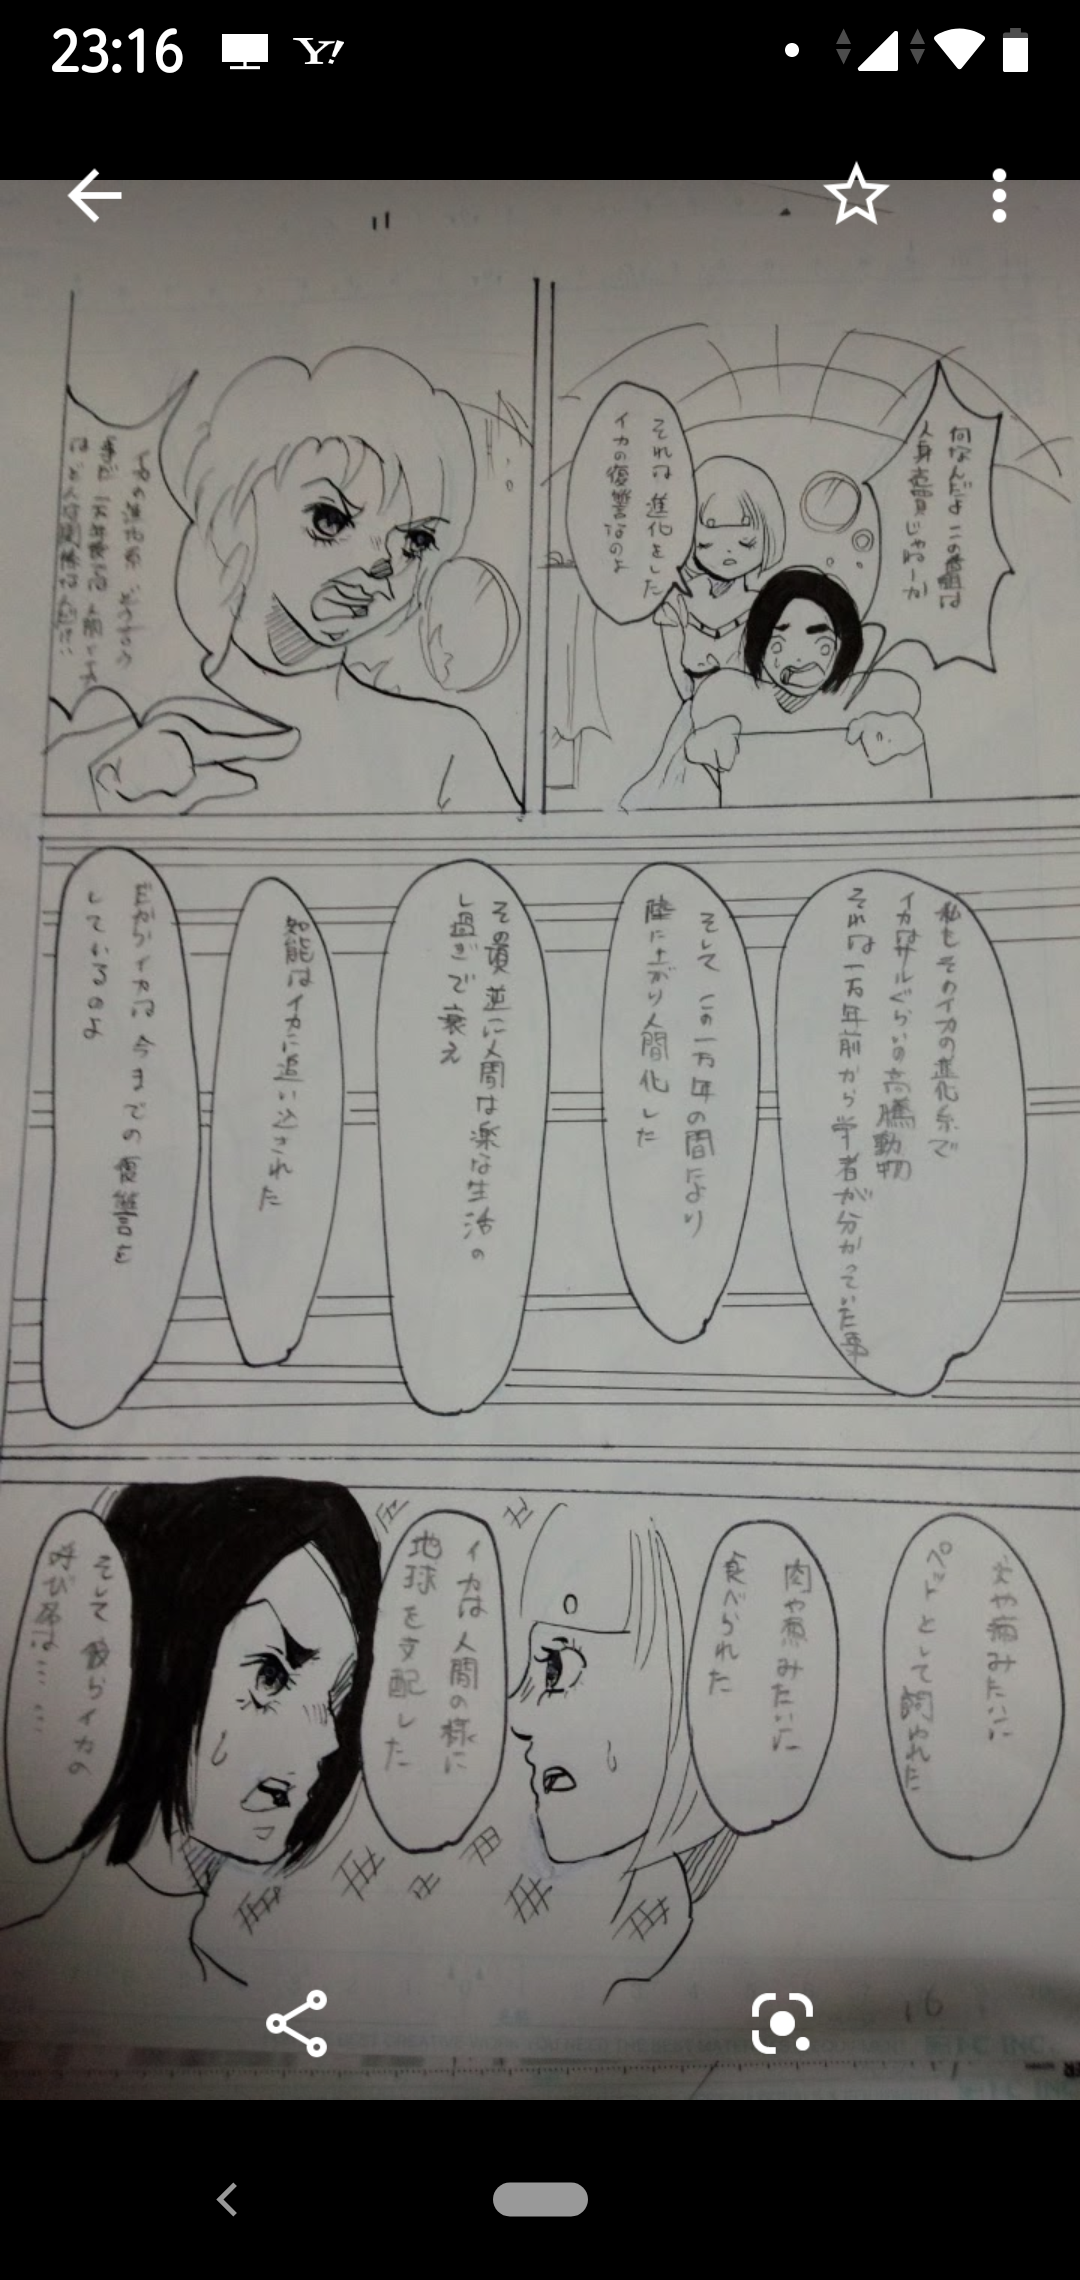 23:16
Y!
何なんだよこの番組は
人身賣買じゃねーか
それは進化をした
イカの復讐なのよ
イカの進化系
私もそのイカの進化系で
イカはサルぐらいの高騰動物
それは一万年前から学者が分かっていた事
そしてこの一万年の間により
陸に上がり人間化した
その頃逆に人間は楽な生活の
し過ぎで衰え
知能はイカに追い込された
だからイカは今までの復讐を
しているのよ
犬や猫みたいに
ペットとして飼われた
肉や魚みたいに
食べられた
イカは人間の様に
地球を支配した
そして彼らイカの
呼び名は……
16